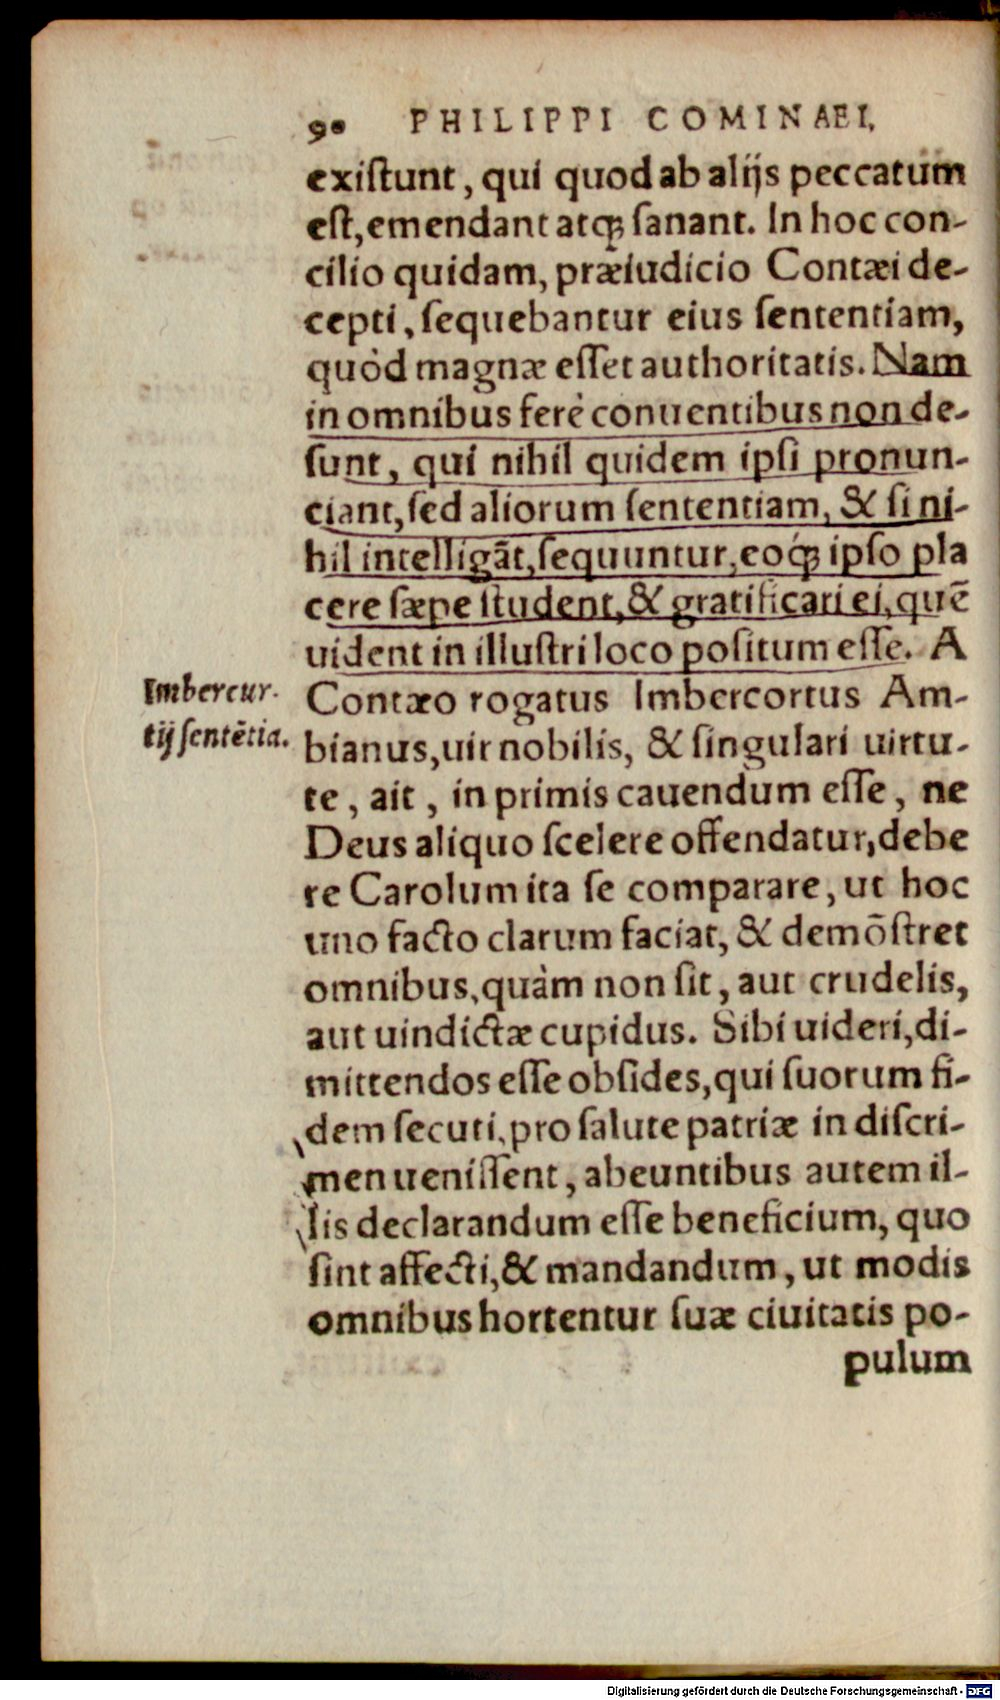 90 PHILIPPI COMINAEI,
existunt, qui quod ab alijs peccatum
est, emendant atq; sanant. In hoc con-
cilio quidam, præiudicio Contæi de-
cepti, sequebantur eius sententiam,
quòd magnæ esset authoritatis. Nam
in omnibus ferè conuentibus non de-
sunt, qui nihil quidem ipsi pronun-
ciant, sed aliorum sententiam, & si ni-
hil intelligāt, sequuntur, eoq́; ipso pla
cere sæpe student, & gratificari ei, quē
uident in illustri loco positum esse. A
Imbercur-
tij sentētia.
Contæo rogatus Imbercortus Am-
bianus, uir nobilis, & singulari uirtu-
te, ait, in primis cauendum esse, ne
Deus aliquo scelere offendatur, debe
re Carolum ita se comparare, ut hoc
uno facto clarum faciat, & demōstret
omnibus, quàm non sit, aut crudelis,
aut uindictæ cupidus. Sibi uideri, di-
mittendos esse obsides, qui suorum fi-
dem secuti, pro salute patriæ in discri-
men uenissent, abeuntibus autem il-
lis declarandum esse beneficium, quo
sint affecti, & mandandum, ut modis
omnibus hortentur suæ ciuitatis po-
pulum
Digitalisierung gefördert durch die Deutsche Forschungsgemeinschaft - DFG